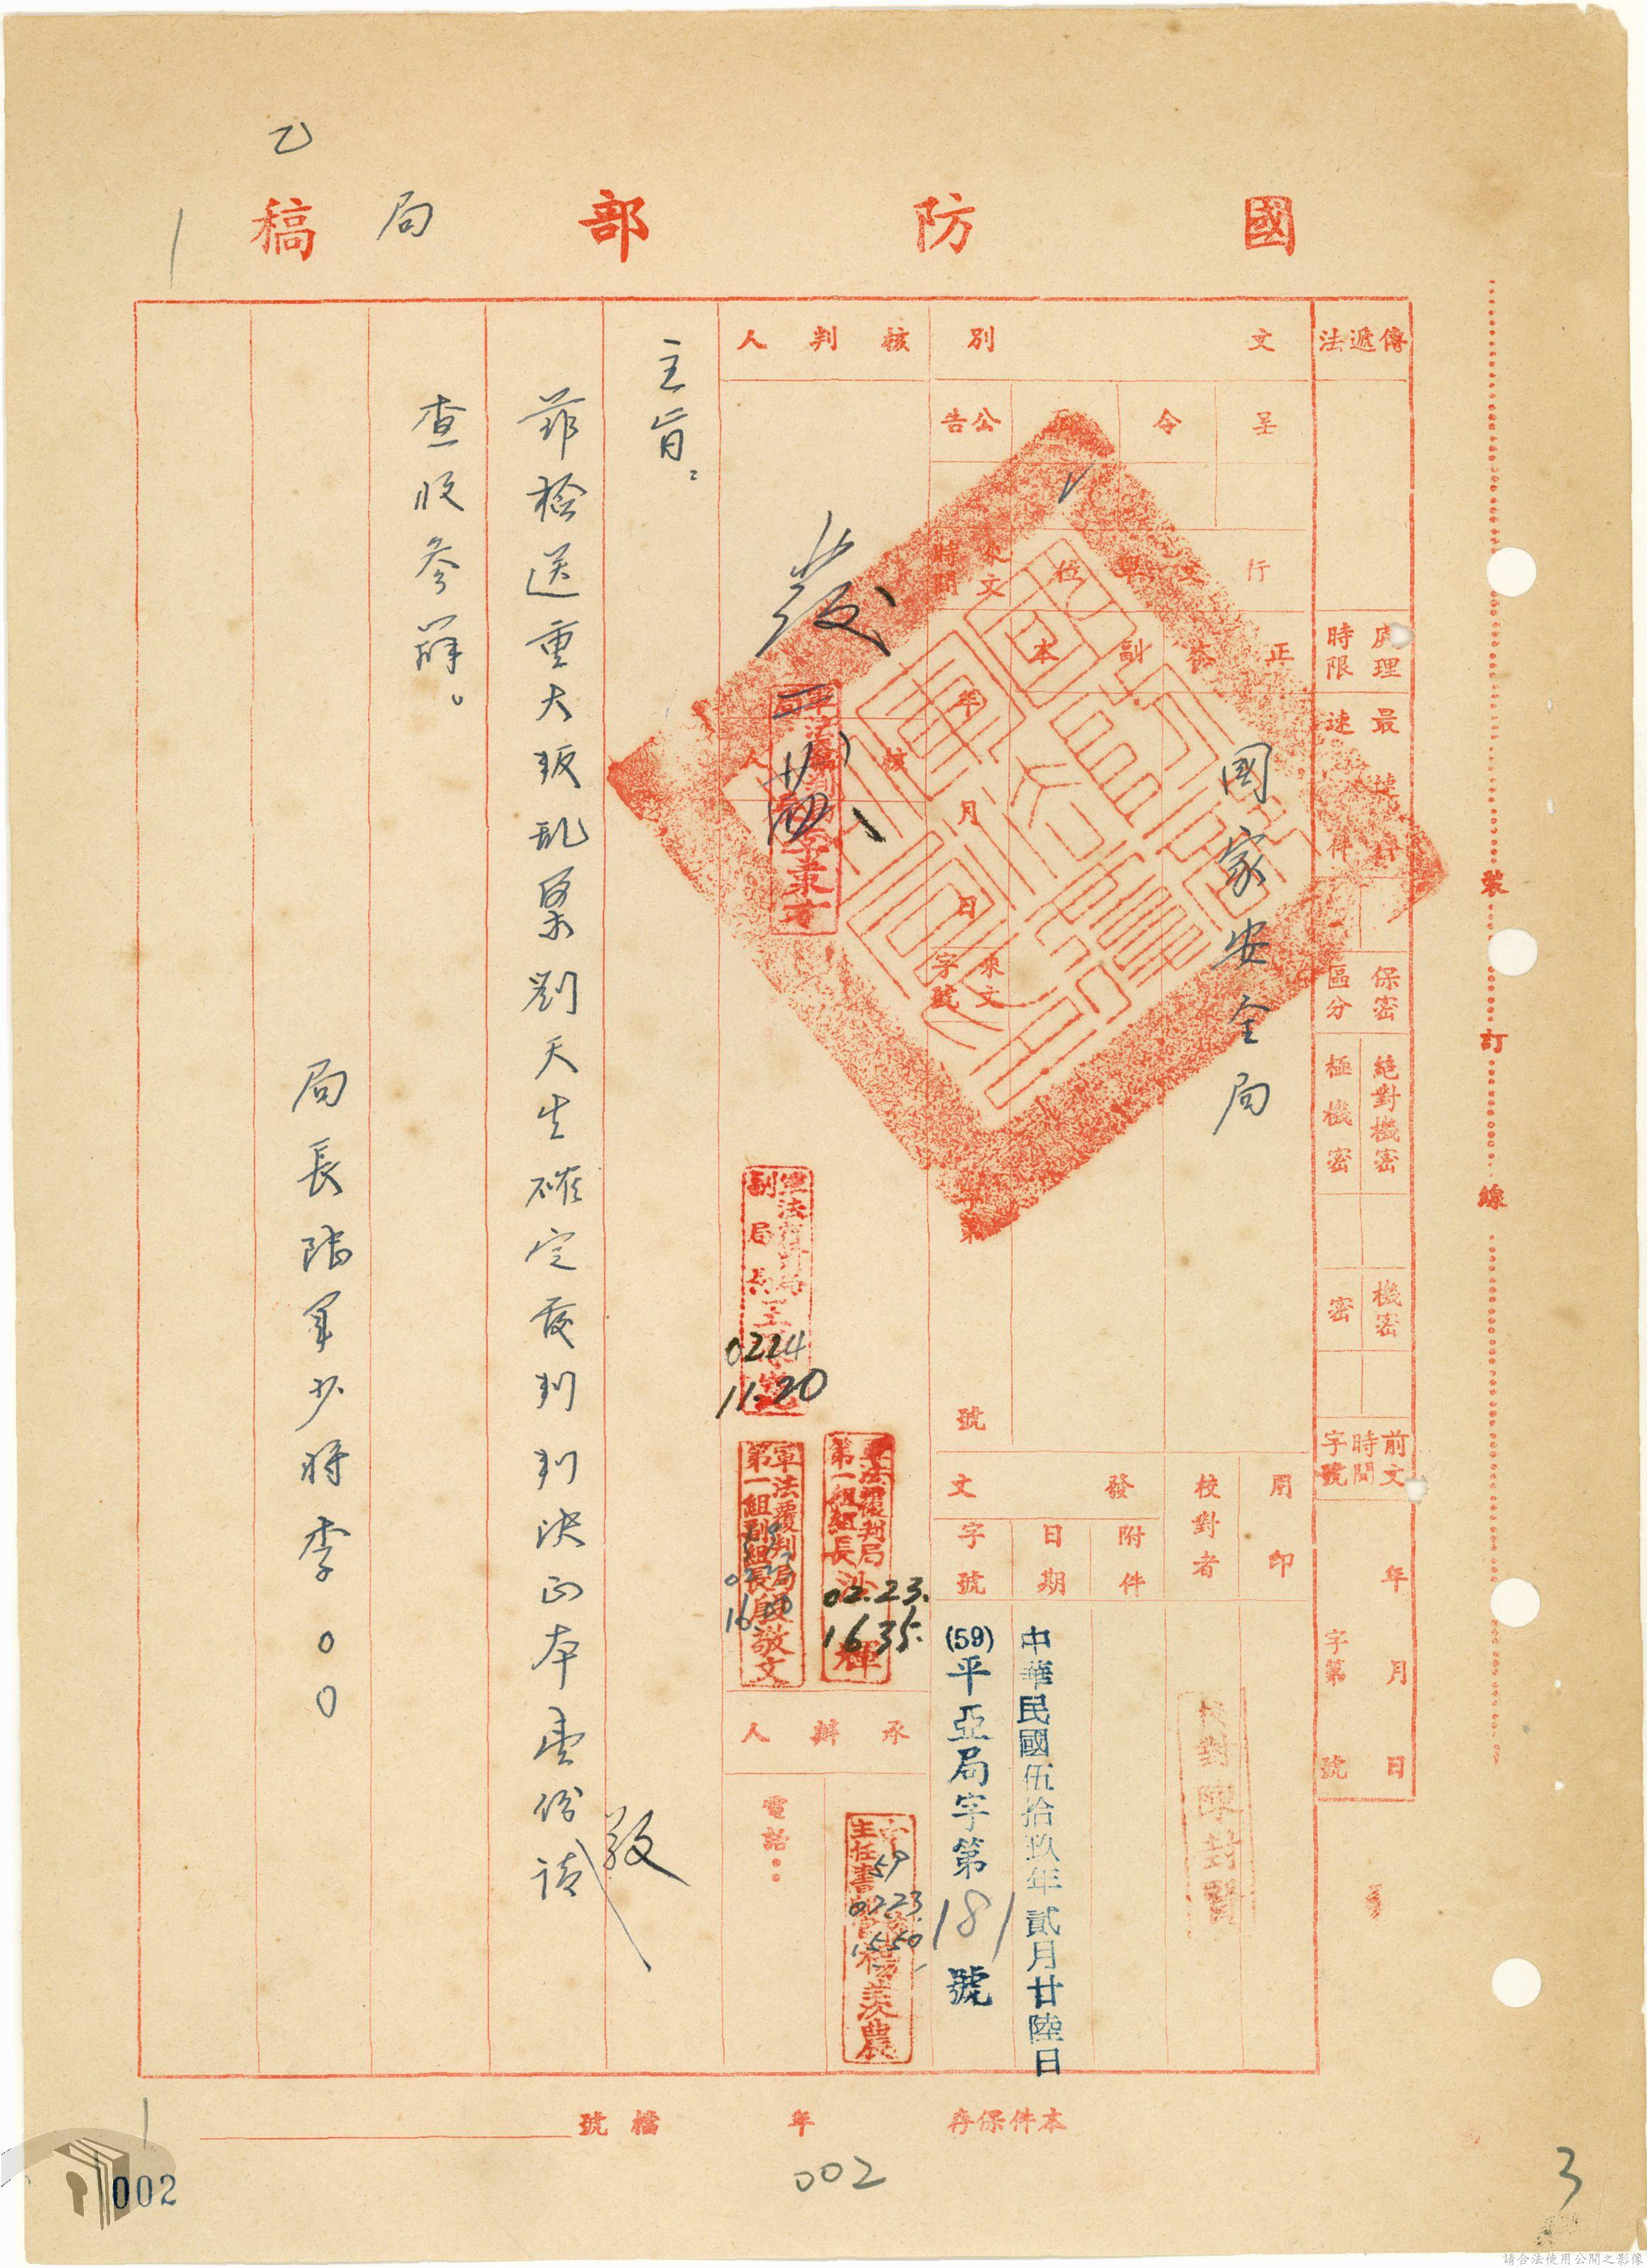 國防部局稿
乙
傳遞法
處理時限
最速件
速件
保密區分
絕對機密
極機密
機密
密
前文時間字號
年月日
字第號
文別
呈
令
公告
行文單位
正本
副本
國家安全局
來文時間
年月日
來文字號
字第
號
用印
校對者
發文
附件
日期
字號
中華民國伍拾玖年貳月廿陸日
(59)平亞局字第181號
校對陳封賢
核判人
發
核
人
0224
11.20
軍法覆判局
第一組組長
02.23.
1635.
軍法覆判局
第一組副組長殷敬文
承辦人
電話：
主任書記官楊羨農
59
0223
1550
主旨：
茲檢送重大叛亂案劉天生確定覆判判決正本壹份請
敬
查收參辦。
局長陸軍少將李○○
裝訂線
本件保存
年
檔號
002
002
3
請合法使用公開之影像